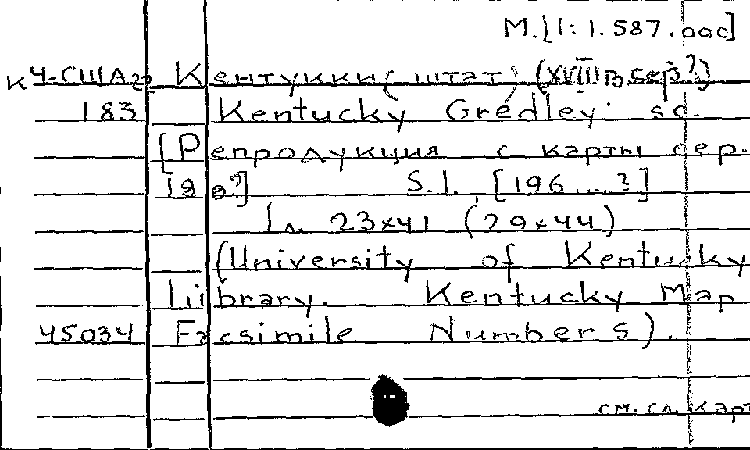 М.[1:1.587.000]
К4-США2 Кентукки (штат) (XVIII в. сер.?)
183 Kentucky Gredley sc.
[Репродукция с карты сер.
18 в?] S.l., [196...?]
1 л. 23x41 (29x44)
(University of Kentucky
Library. Kentucky Map
45034 Facsimile Number 5).
см. сл. карт